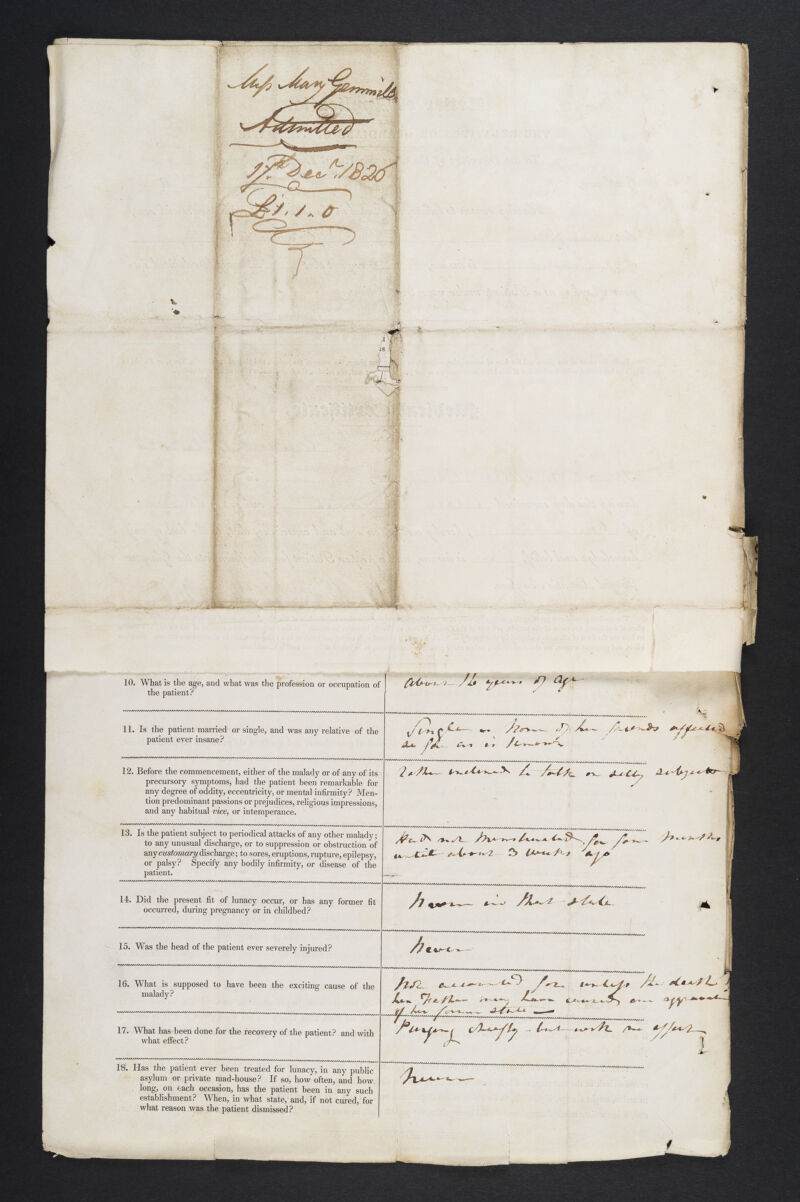 Miss Mary Gemmill
Admitted
17th Decr. 1826
£1.1.0
10. What is the age, and what was the profession or occupation of
the patient?
about 16 years of age
11. Is the patient married or single, and was any relative of the
patient ever insane?
Single – None of her friends affected
as far as is known
12. Before the commencement, either of the malady or of any of its
precursory symptoms, had the patient been remarkable for
any degree of oddity, eccentricity, or mental infirmity? Men-
tion predominant passions or prejudices, religious impressions,
and any habitual vice, or intemperance.
Rather inclined to talk on silly subjects
13. Is the patient subject to periodical attacks of any other malady;
to any unusual discharge, or to suppression or obstruction of
any customary discharge; to sores, eruptions, rupture, epilepsy,
or palsy? Specify any bodily infirmity, or disease of the
patient.
Had not menstruated for four months
until about 3 weeks ago
14. Did the present fit of lunacy occur, or has any former fit
occurred, during pregnancy or in childbed?
Never in that state
15. Was the head of the patient ever severely injured?
Never
16. What is supposed to have been the exciting cause of the
malady?
Not accounted for unless the death of
her Father may have caused an aggravation
of her former state –
17. What has been done for the recovery of the patient? and with
what effect?
Purging chiefly – but with no effect
18. Has the patient ever been treated for lunacy, in any public
asylum or private mad-house? If so, how often, and how
long, on each occasion, has the patient been in any such
establishment? When, in what state, and, if not cured, for
what reason was the patient dismissed?
Never